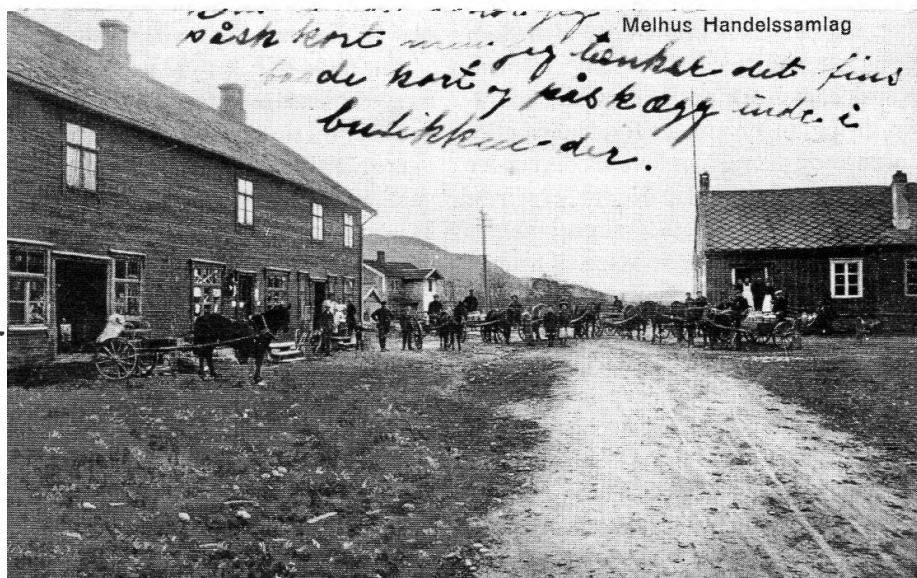 Melhus Handelssamlag
jeg
påsk kort men jeg tænker det fins
baade kort og påskægg inde i
butikken der.